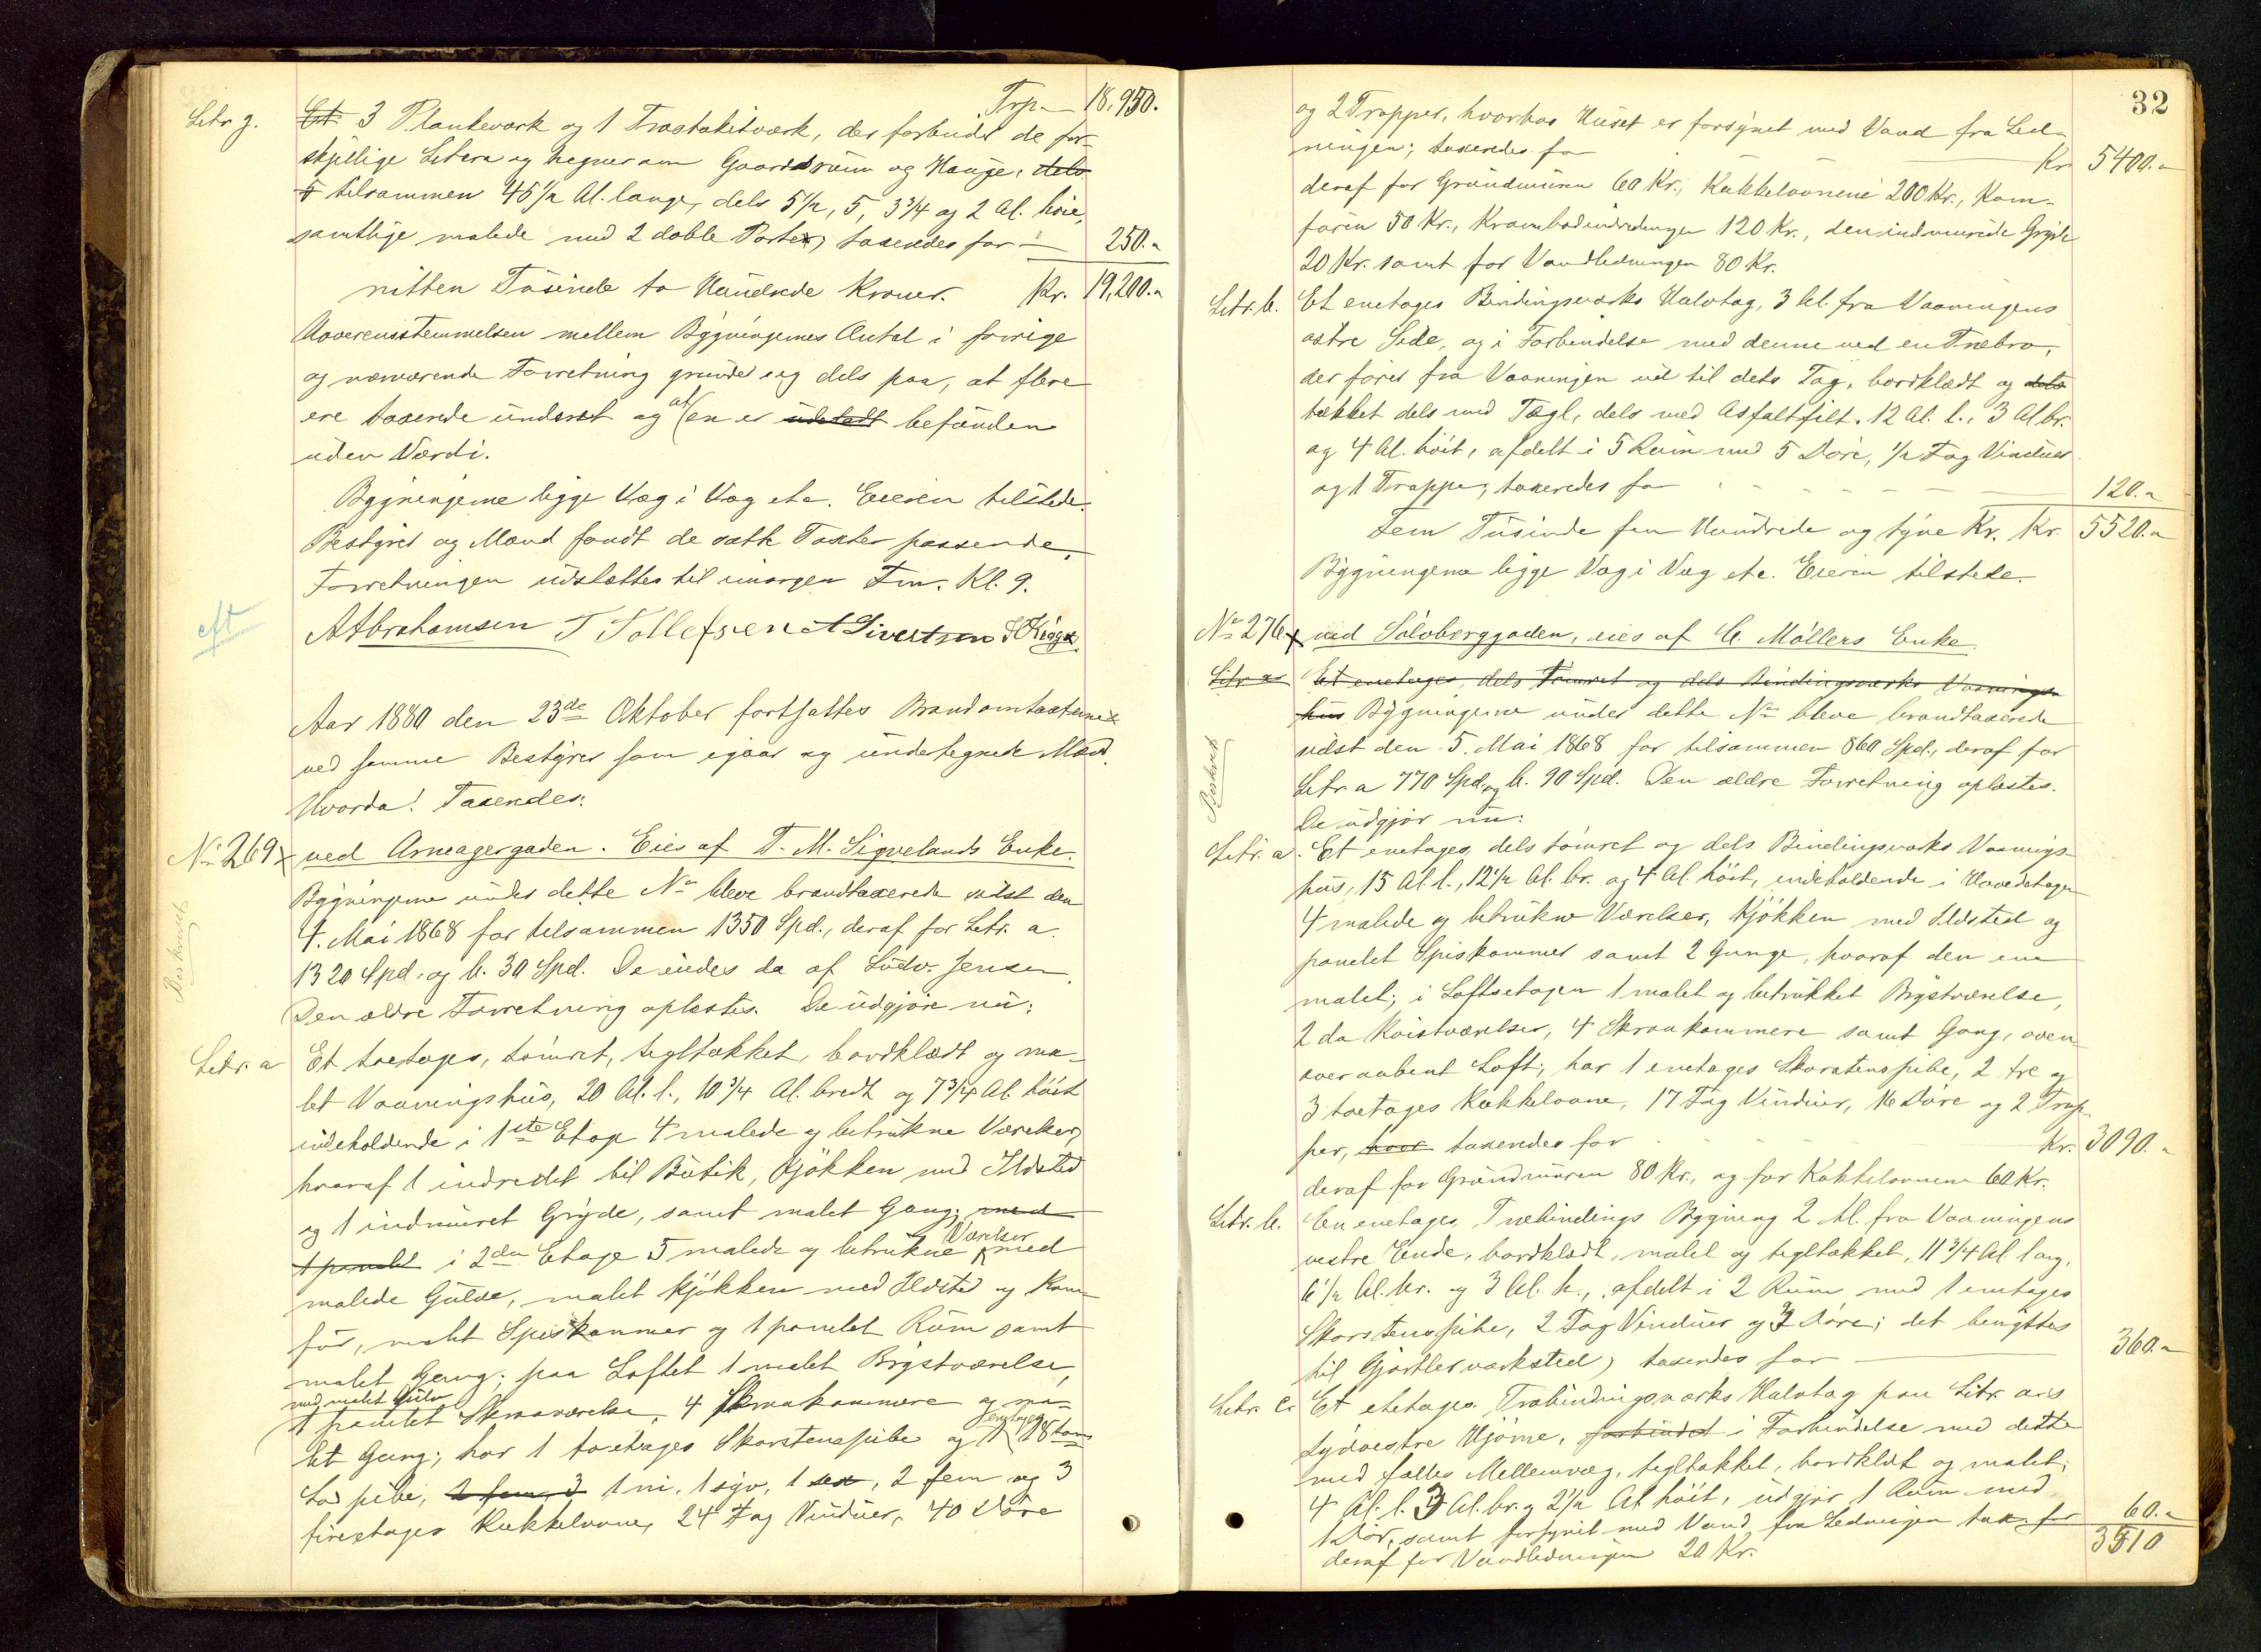 Trp. 18,950.
Litr. g. Et 3 Plankeværk og 1 Træstakitværk, der forbinde de for-
skjellige Litera og hegner om Gaardsrum og Hauge, dels
5 tilsammen 45½ Al. lange, dels 5½, 5, 3¾ og 2 Al. høie,
samtlige malede med 2 doble Porte, taxeredes for — 250.-
nitten Tusinde to Hundrede Kroner. Kr. 19,200.-
Uoverensstemmelsen mellem Bygningernes Antal i forrige
og nærværende Forretning grunder sig dels paa, at flere
ere taxerede underet og at en er udeladt befunden
uden Værdi.
Bygningerne ligge Væg i Væg etc. Eieren tilstede.
Bestyrer og Mænd fandt de satte Taxter passende.
Forretningen udsættes til imorgen Fm. Kl. 9.
eft
A Abrahamsen T Tollefsen A Sivertsen
Aar 1880 den 23de Oktober fortsattes Brandomtaxterne
ved samme Bestyrer som igaar og undertegnede Mænd.
Hvorda! Taxeredes:
No 269 ved Arneagergaden. Eies af T. M. Sigvelands Enke.
Beskrevet
Bygningerne under dette No bleve brandtaxerede sidst den
4. Mai 1868 for tilsammen 1350 Spd., deraf for Litr. a.
1320 Spd. og b. 30 Spd. De eiedes da af Ludv. Jensen.
Den ældre Forretning oplæstes. De udgjøre nu:
Litr. a Et toetages, tømret, tegltækket, bordklædt og ma-
let Vaaningshus, 20 Al. l., 10¾ Al. bredt og 7¾ Al. høit
indeholdende i 1ste Etage 4 malede og betrukne Værelser,
hvoraf 1 indredet til Butik, Kjøkken med Ildsted
og 1 indmuret Gryde, samt malet Gang; med
1 panelet i 2den Etage 5 malede og betrukne Værelser med
malede Gulve, malet Kjøkken med Ildsted og Kom-
fur, malet Spiskammer og 1 panelet Rum samt
malet Gang; paa Loftet 1 malet Brystværelse,
med malet Gulv
1 panelet Skraaværelse, 4 Skraakammere og ma-
let Gang; har 1 toetages Skorstenspibe og 1 enetages 18 tom
Lodpibe, 2 fem, 3 1 ni, 1 syv, 1 sex, 2 fem og 3
fireetages Kakkelovne, 24 Fag Vinduer, 40 Døre
32
og 2 Trapper, hvorhos Huset er forsynet med Vand fra Led-
ningen; taxeredes for — Kr. 5400.-
deraf for Grundmuren 60 Kr., Kakkelovnene 200 Kr., Kom-
furen 50 Kr., Krambodindredningen 120 Kr., den indmurede Gryde
20 Kr. samt for Vandledningen 80 Kr.
Litr. b. Et enetages Bindingsværks Halvtag, 3 Al. fra Vaaningens
østre Side, og i Forbindelse med denne ved en Træbro,
der fører fra Vaaningen ud til dets Tag, bordklædt og dels
tækket dels med Tægl, dels med Asfaltfilt. 12 Al. l., 3 Al br.
og 4 Al. høit, afdelt i 5 Rum med 5 Døre, ½ Fag Vinduer
og 1 Trappe; taxeredes for — 120.-
Fem Tusinde fem Hundrede og tyve Kr. Kr. 5520.-
Bygningerne ligge Væg i Væg etc. Eieren tilstede.
No 276 ved Sølvberggaden, eies af C. Møllers Enke.
Litr a Et enetages, dels tømret og dels Bindingsværks Vaanings-
Beskrevet
hus Bygningerne under dette No bleve brandtaxerede
sidst den 5. Mai 1868 for tilsammen 860 Spd., deraf for
Litr. a 770 Spd. og b. 90 Spd. Den ældre Forretning oplæstes.
De udgjør nu:
Litr. a. Et enetages, dels tømret og dels Bindingsværks Vaanings-
hus, 15 Al. l., 12½ Al. br. og 4 Al. høit, indeholdende i Hovedetagen
4 malede og betrukne Værelser, Kjøkken med Ildsted og
panelet Spiskammer samt 2 Gange, hvoraf den ene
malet; i Loftsetagen 1 malet og betrukket Brystværelse,
2 do Kvistværelser, 4 Skraakammere samt Gang, oven-
over aabent Loft; har 1 enetages Skorstenspibe, 2 tre og
3 toetages Kakkelovne, 17 Fag Vinduer, 16 Døre og 2 Trap-
per, hvor taxeredes for — Kr. 3090.-
deraf for Grundmuren 80 Kr., og for Kakkelovnene 60 Kr.
Litr. b. En enetages Træbindings Bygning 2 Al. fra Vaaningens
vestre Ende, bordklædt, malet og tegltækket, 11¾ Al. lang,
6½ Al. br. og 3 Al. h., afdelt i 2 Rum med 1 enetages
Skorstenspibe, 2 Fag Vinduer og 3 Døre; det benyttes
til Gjørtlerværksted; taxeredes for — 360.-
Litr. c. Et etetages Træbindingsværks Halvtag paa Litr. a's
sydvestre Hjørne, forbundet i Forbindelse med dette
med fælles Mellemvæg, tegltækket, bordklædt og malet,
4 Al. l. 3 Al. br. og 2½ Al høit, udgjør 1 Rum med
1 Dør, samt forsynet med Vand fra Ledningen tax. for 60.-
deraf for Vandledningen 20 Kr. 3510